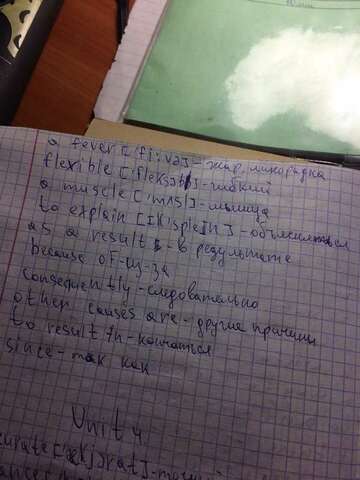 a fever ['fi:və] - жар, лихорадка
flexible ['fleksəbl] - гибкий
a muscle ['mʌsl] - мышца
to explain [ɪk'spleɪn] - объяснять
as a result - в результате
because of - из-за
consequently - следовательно
other causes are - другие причины
to result in - кончаться
since - так как
Unit 4